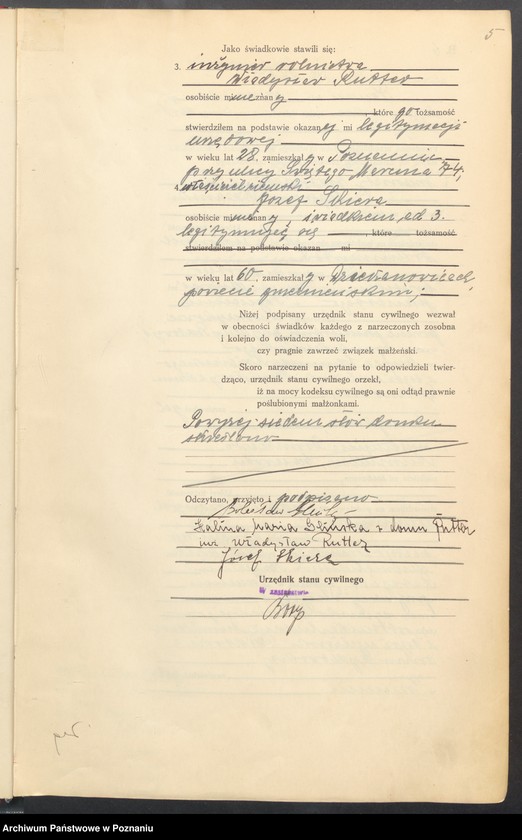 5
Jako świadkowie stawili się:
3. inżynier rolnictwa
Władysław Rutter
osobiście mi nieznany
, które go tożsamość
stwierdziłem na podstawie okazanej mi legitymacji
urzędowej
w wieku lat 28, zamieszkały w Poznaniu
przy ulicy Świętego Marcina 74;
4. właściciel ziemski
Józef Skiera
osobiście mi znany, świadkiem ad 3.
legitymujący się, które tożsamość
stwierdziłem na podstawie okazan mi
w wieku lat 60, zamieszkały w
powiecie gnieźnieńskim;
Niżej podpisany urzędnik stanu cywilnego wezwał
w obecności świadków każdego z narzeczonych zosobna
i kolejno do oświadczenia woli,
czy pragnie zawrzeć związek małżeński.
Skoro narzeczeni na pytanie to odpowiedzieli twier-
dząco, urzędnik stanu cywilnego orzekł,
iż na mocy kodeksu cywilnego są oni odtąd prawnie
poślubionymi małżonkami.
Powyżej siedem słów druku
skreślono
Odczytano, przyjęto i podpisano
Halina Maria z domu Rutter
inż. Władysław Rutter
Józef Skiera
Urzędnik stanu cywilnego
W zastępstwie
Archiwum Państwowe w Poznaniu